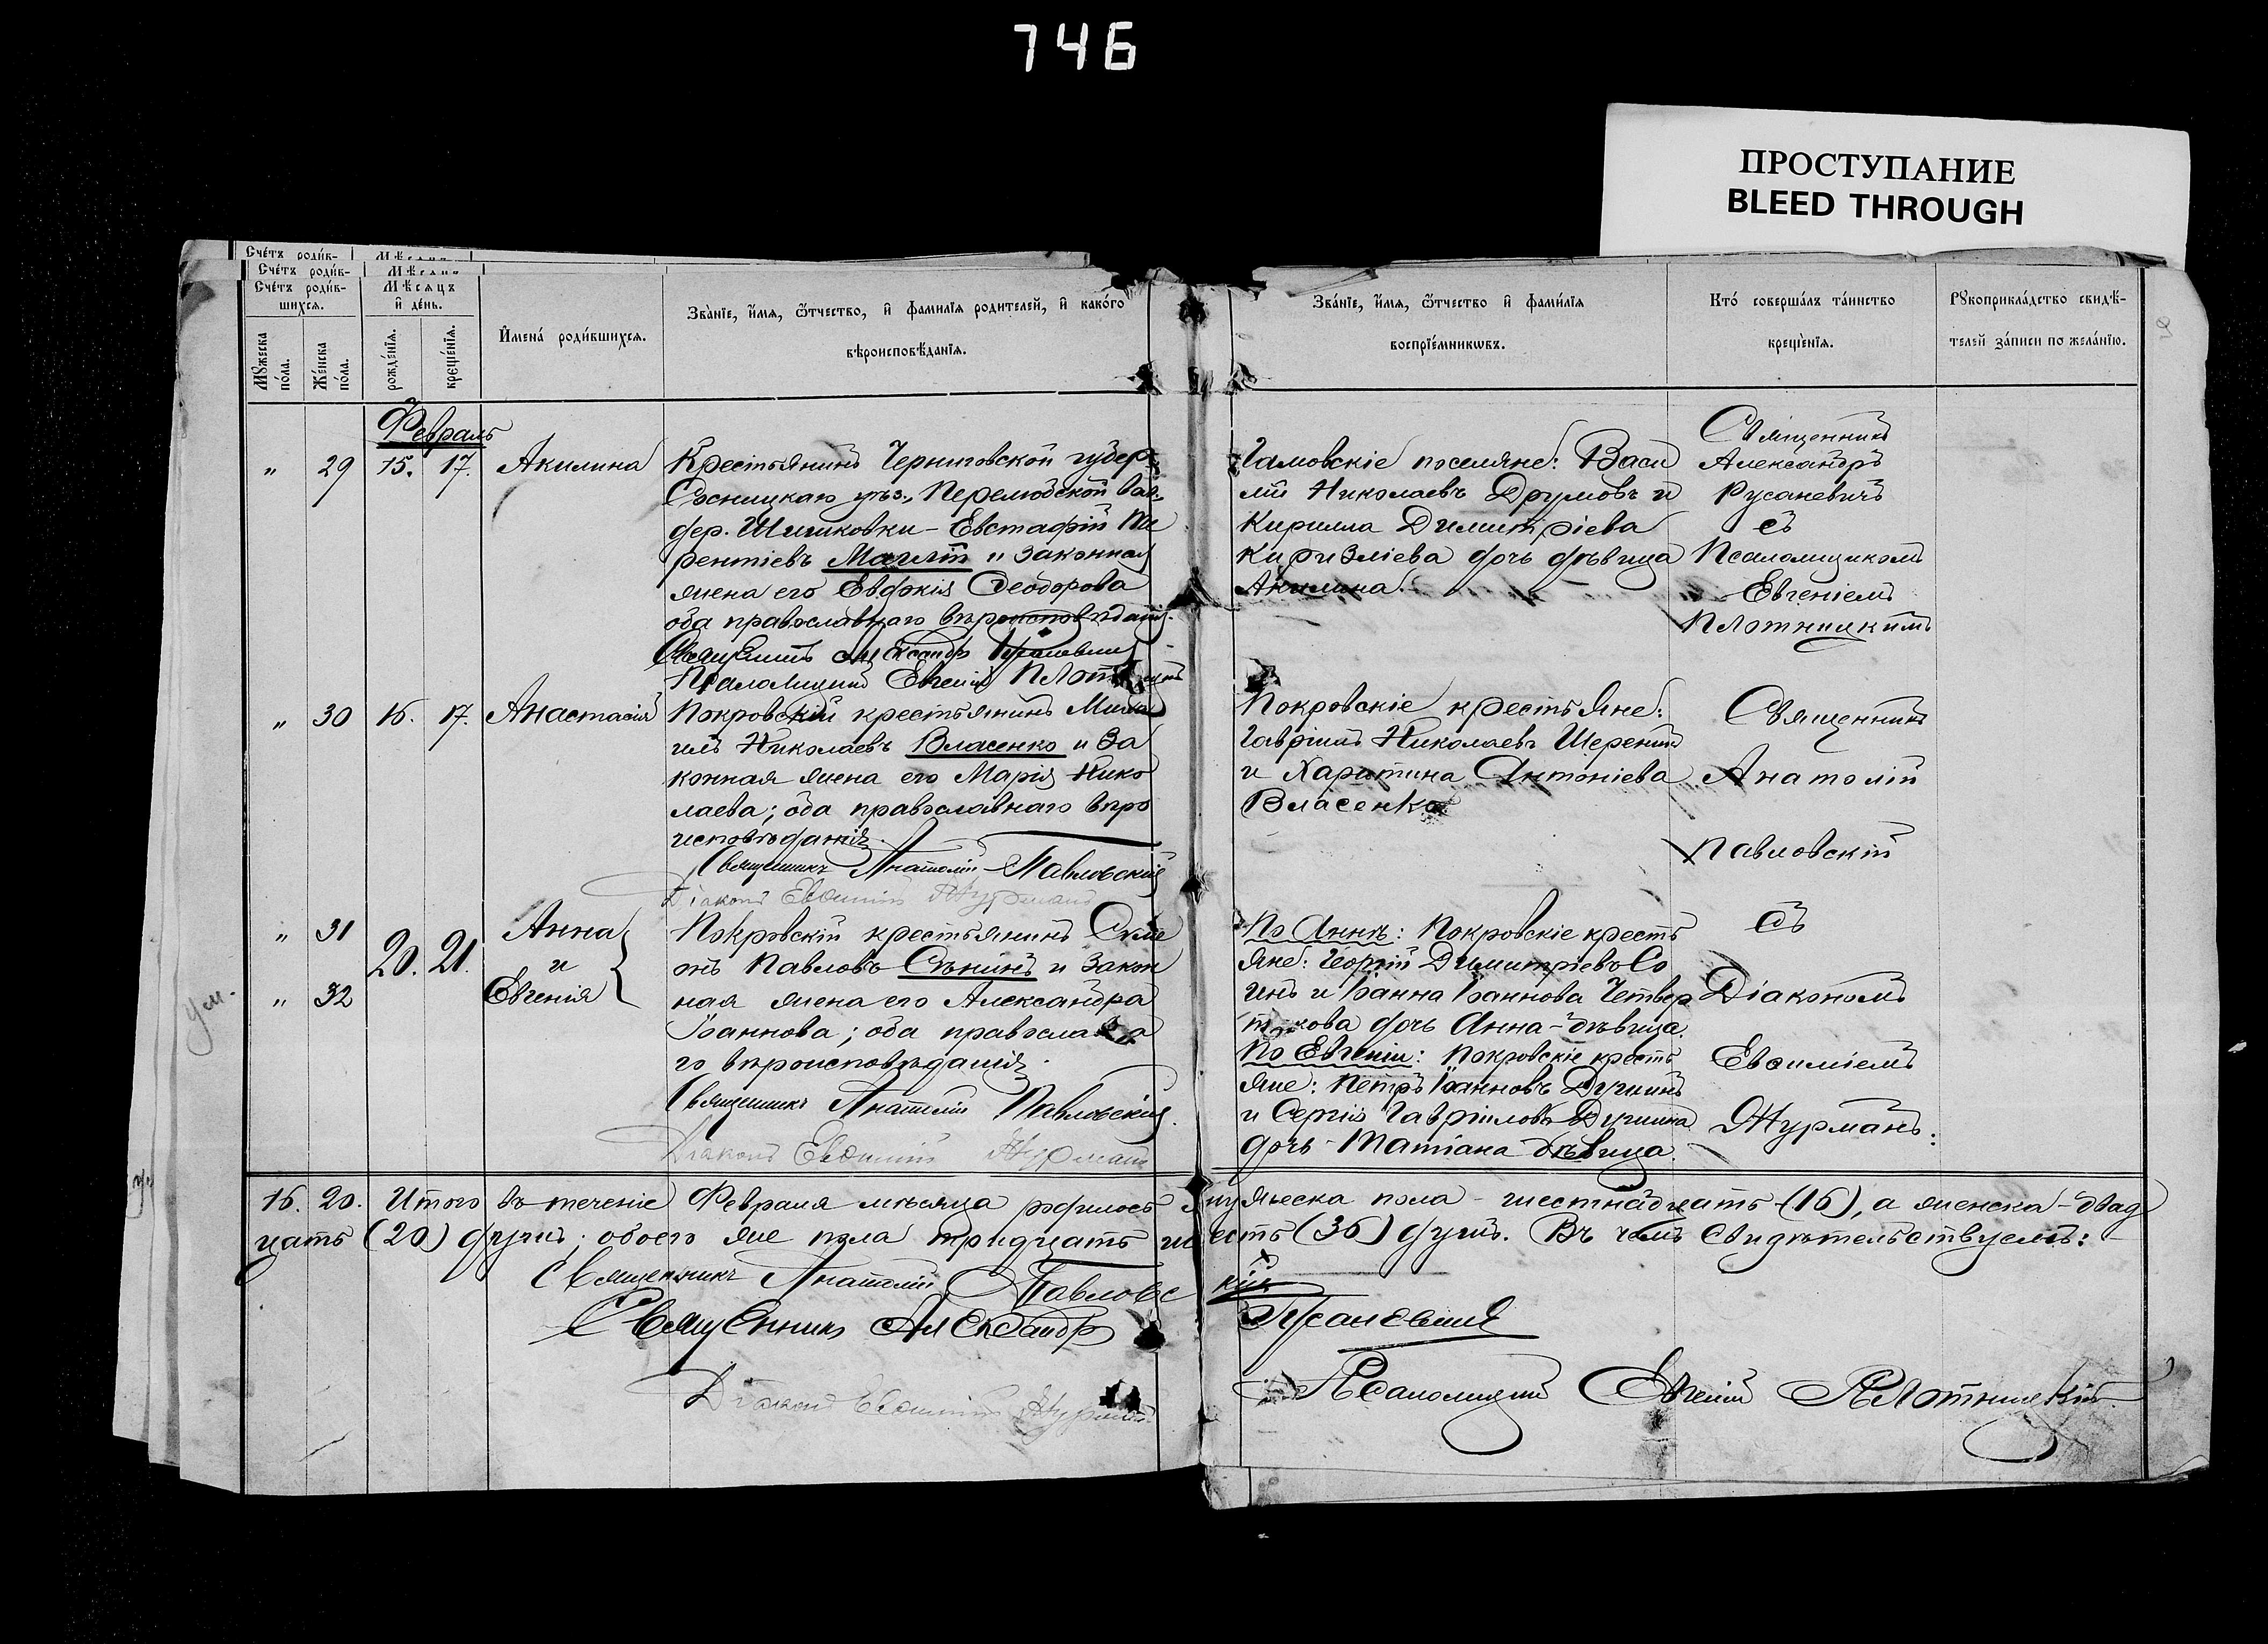 746
ПРОСТУПАНИЕ
BLEED THROUGH
Сче́тъ роди́в-
Сче́тъ роди́в-
Сче́тъ роди́в-
шихсѧ.
Мѣсѧцъ
и҆ де́нь.
Мꙋжеска по́ла.
Же́нска по́ла.
рожде́нїѧ.
креще́нїѧ.
И҆мена̀ роди́вшихсѧ.
Зва̀нїе, и҆́мѧ, ѻ҆́тчество, и҆ фами́лїѧ родителей, и҆ како́го
вѣроисповѣ́данїѧ.
Зва́нїе, и҆́мѧ, ѻ҆́тчество и҆ фами́лїѧ
воспрїе́мникѡвъ.
Кто́ соверша́лъ та́инство
креще́нїѧ.
Рꙋкоприкла́дство свидѣ́-
телей за́писи по жела́нїю.
Февраль
" 29 15. 17. Акилина
Крестьянинъ Черниговской губер.
Сосницкаго уѣз., Перелюбской вол.
дер. Шишковки - Евстафій Ла
рентіевъ и законная
жена его Евдокія Ѳеодорова
оба православнаго вѣроисповѣданія.
Священникъ Александръ Русаневичъ
Псаломщикъ Евгеній Плотницкій
Гамовскіе поселяне: Васи
лій Николаевъ Друмовъ и
Кирилла Димитріева
дочь дѣвица
Акилина.
Священникъ
Александръ
Русаневичъ
съ
Псаломщикомъ
Евгеніемъ
Плотницкимъ
" 30 16. 17. Анастасія
Покровскій крестьянинъ Миха
илъ Николаевъ Власенко и за
конная жена его Марія Нико
лаева; оба православнаго вѣро
исповѣданія.
Священникъ Анатолій Павловскій
Діаконъ Евѳимій Журманъ
Покровскіе крестьяне:
Гавріилъ Николаевъ
и Харитина Антоніева
Власенко
Священникъ
Анатолій
Павловскій
" 31 20. 21. Анна
и
" 32 Евгенія
Покровскій крестьянинъ Симе
онъ Павловъ Сѣнинъ и закон
ная жена его Александра
Іоаннова; оба православна
го вѣроисповѣданія.
Священникъ Анатолій Павловскій.
Діаконъ Евѳимій Журманъ
По Аннѣ: Покровскіе кресть
яне: Георгій Димитріевъ Со
инъ и Іоанна Іоаннова Четвер
такова дочь Анна - дѣвица.
По Евгеніи: Покровскіе кресть
яне: Петръ Іоанновъ Дучинъ
и Сергія Гавріилова Дучина
дочь - Татіана дѣвица.
съ
Діакономъ
Евѳиміемъ
Журманъ:
ум.
16. 20. Итого въ теченіе Февраля мѣсяца родилось мужеска пола - шестнадцать (16), а женска - двад
цать (20) душъ; обоего же пола тридцать шесть (36) душъ. Въ чемъ свидѣтельствуемъ:
Священникъ Анатолій Павловскій
Священникъ Александръ Русаневичъ
Діаконъ Евѳимій Журманъ
Псаломщикъ Евгеній Плотницкій.